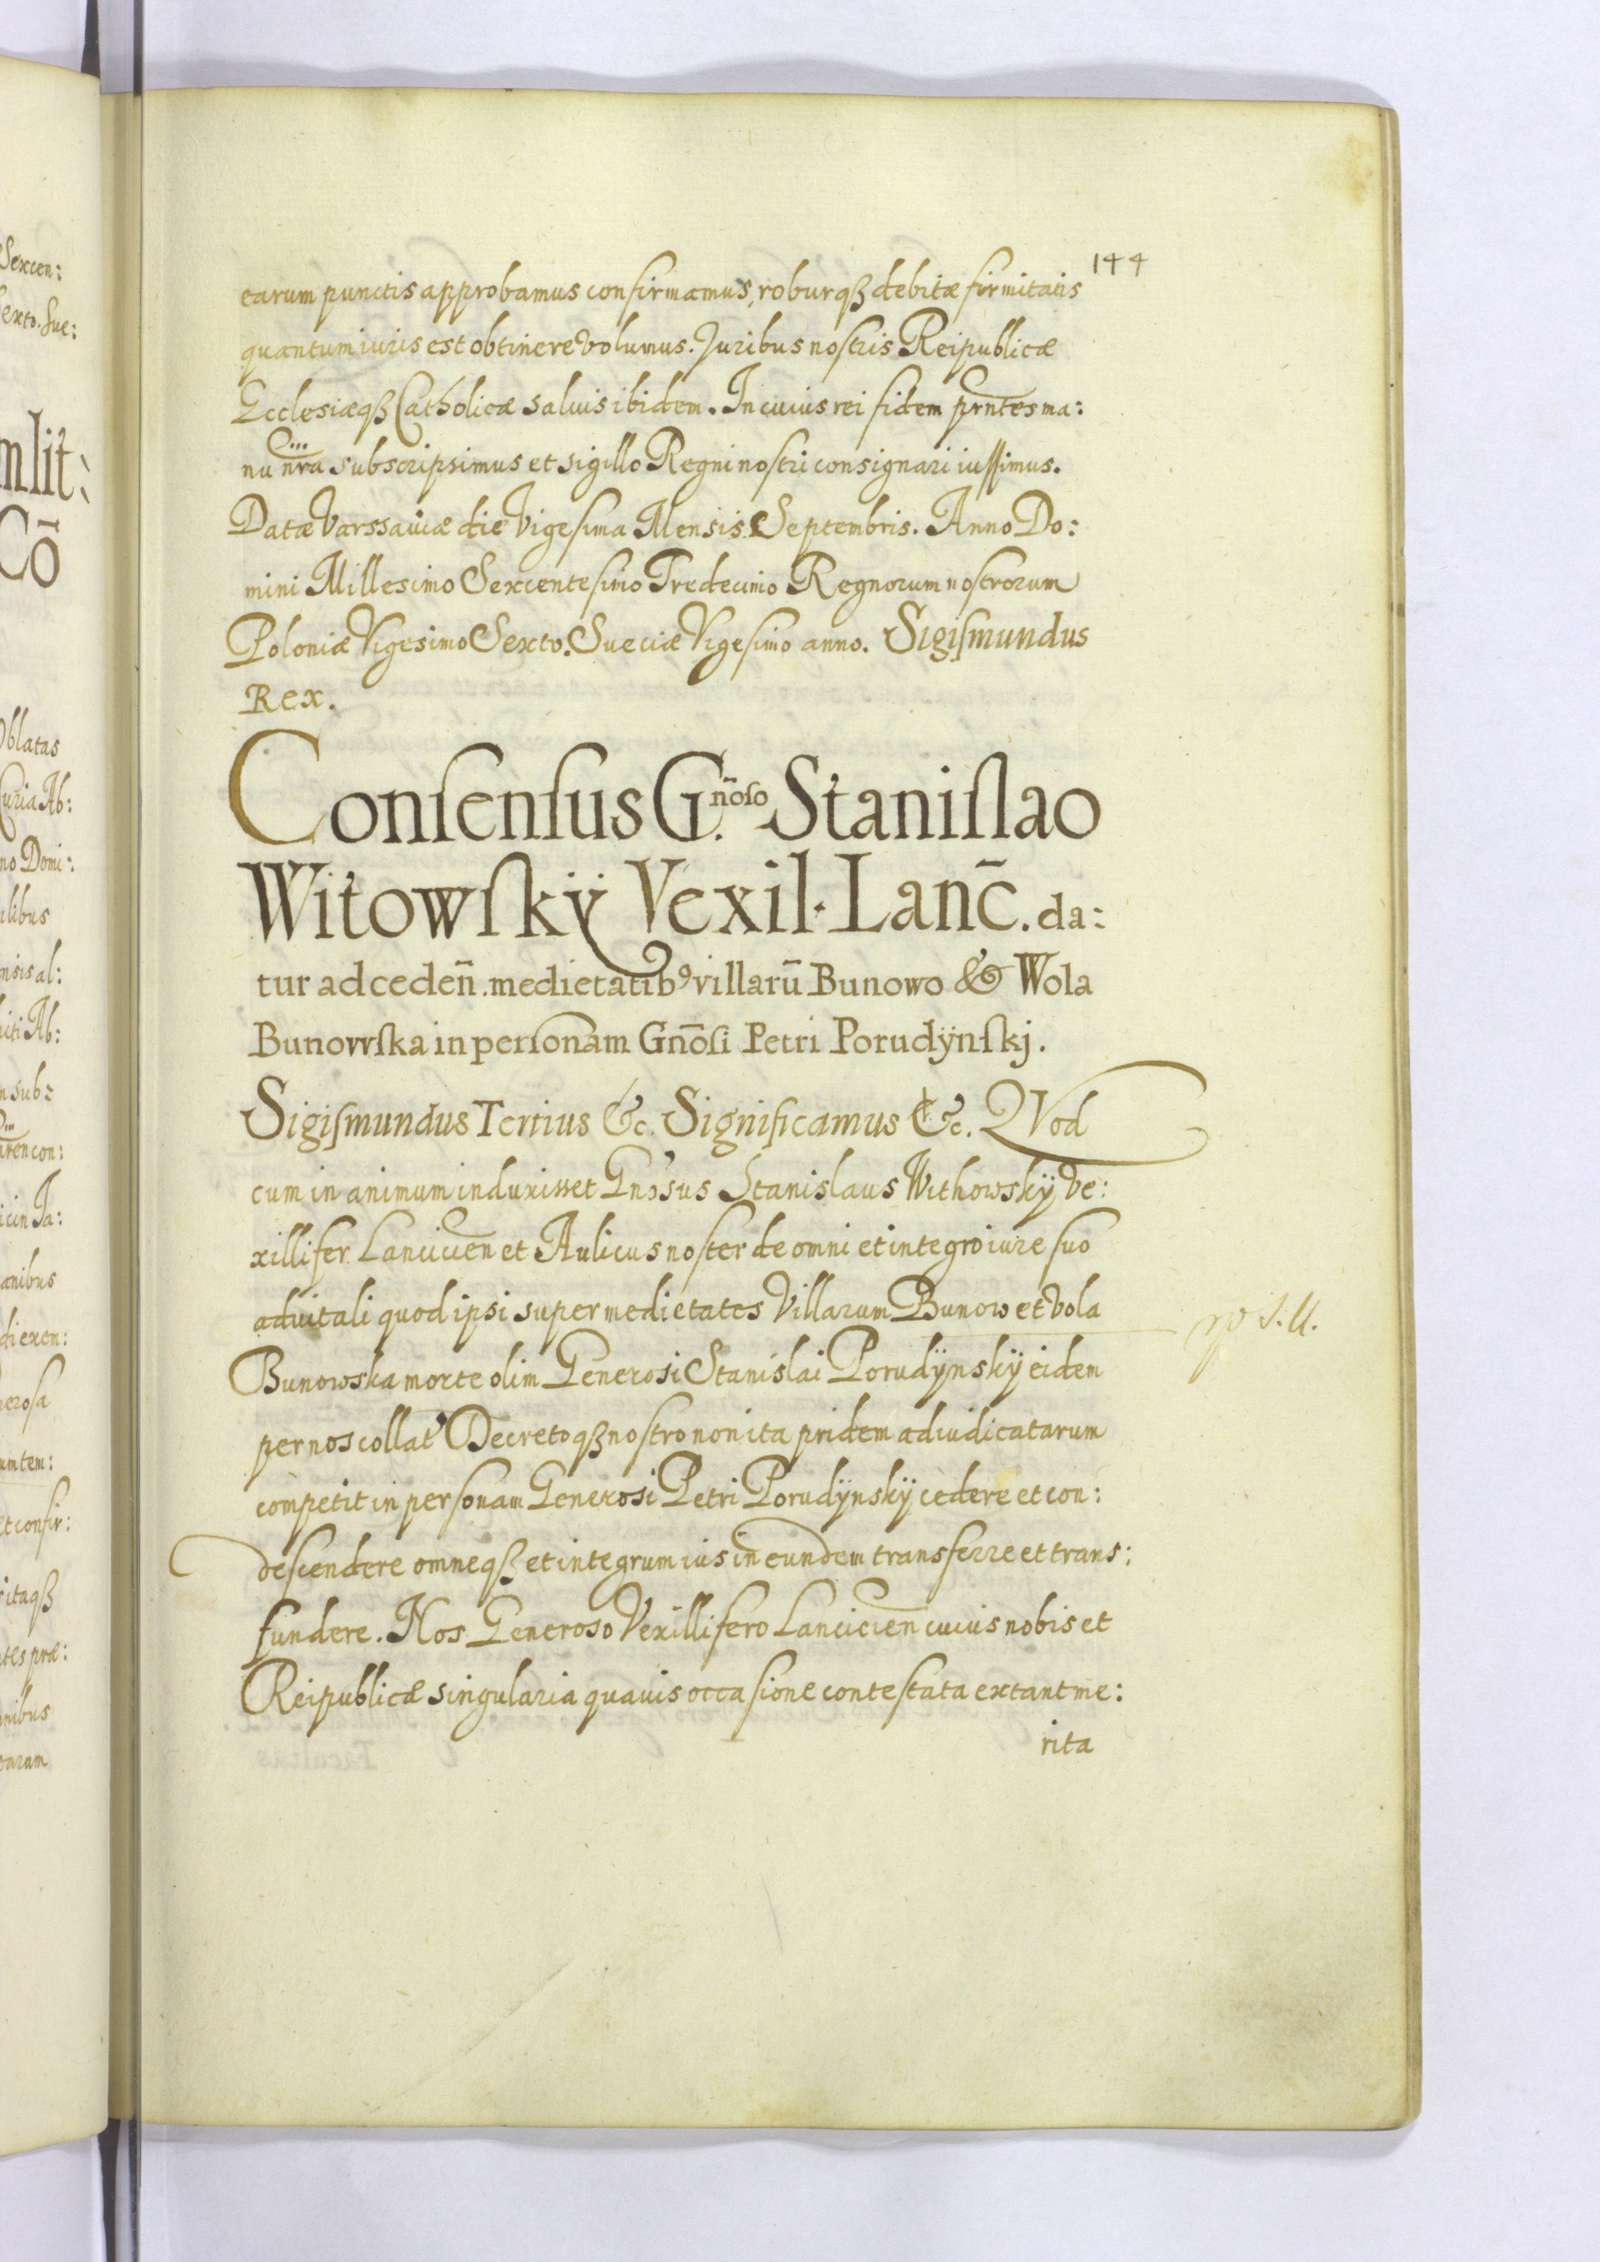 144
earum punctis approbamus confirmamus, roburqꝫ debitæ firmitatis
quantum iuris est obtinere volumus. Juribus nostris Reipublicæ
Ecclesiæqꝫ Catholicæ salvis ibidem. In cuius rei fidem prntes ma:
nu nra subscripsimus et sigillo Regni nostri consignari iussimus.
Datæ Varssaviæ die Vigesima Mensis Septembris. Anno Do:
mini Millesimo Sexcentesimo Tredecimo Regnorum nostrorum
Poloniæ Vigesimo Sexto. Sueciæ Vigesimo anno. Sigismundus
Rex.
Consensus G.ñoso Stanislao
Witowskÿ Vexil. Lanc̄. da:
tur ad ceden̄. medietatibꝰ villarū Bunowo & Wola
Bunowska in personam Gnōsi Petri Porudÿnskj.
Sigismundus Tertius &c. Significamus &c. QVod
cum in animum induxisset Gnosus Stanislaus Withowskÿ Ve:
xillifer Lancicien et Aulicus noster de omni et integro iure suo
advitali quod ipsi super medietates Villarum Bunow et Vola
Bunowska morte olim Generosi Stanislai Porudÿnskÿ eidem
per nos collat' Decretoqꝫ nostro non ita pridem adiudicatarum
competit in personam Generosi Petri Porudÿnskÿ cedere et con:
descendere omneqꝫ et integrum ius in eundem transferre et trans:
fundere. Nos Generoso Vexillifero Lancicien cuius nobis et
Reipublicæ singularia quavis occasione contestata extant me:
rita